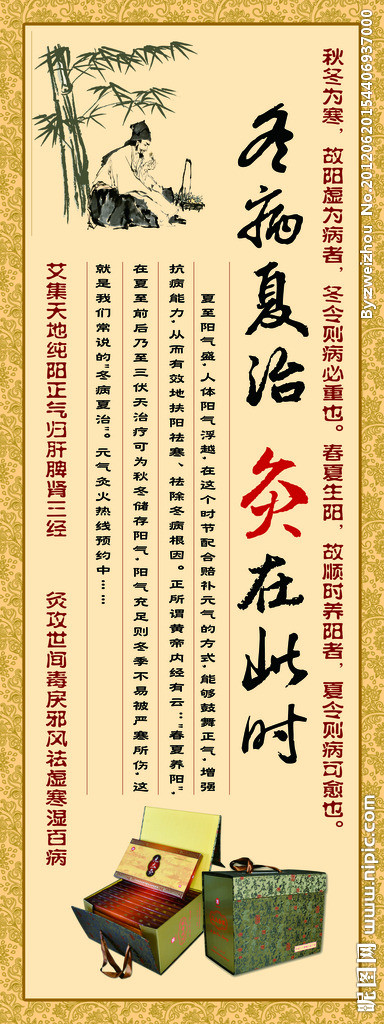 秋冬为寒，故阳虚为病者，冬令则病必重也。春夏生阳，故顺时养阳者，夏令则病可愈也。
冬病夏治 灸在此时
夏至阳气盛，人体阳气浮越，在这个时节配合赔补元气的方式，能够鼓舞正气，增强
抗病能力，从而有效地扶阳祛寒、祛除冬病根因。正所谓黄帝内经有云："春夏养阳"，
在夏至前后乃至三伏天治疗可为秋冬储存阳气，阳气充足则冬季不易被严寒所伤，这
就是我们常说的"冬病夏治"。元气灸火热线预约中……
艾集天地纯阳正气归肝脾肾三经
灸攻世间毒戾邪风祛虚寒湿百病
By:zweizhou No 20120620154406937000
昵图网 www.nipic.com